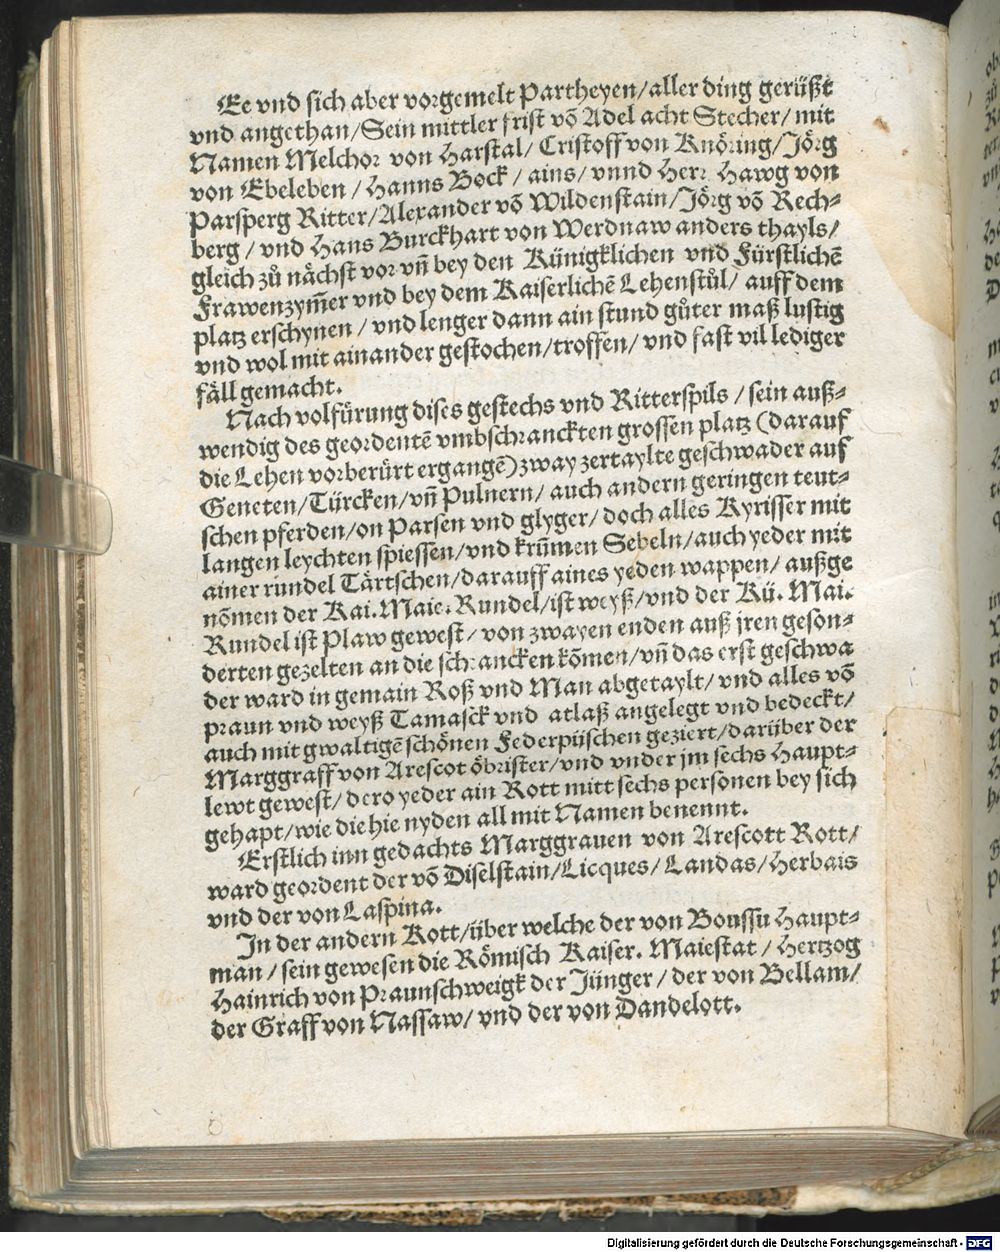 Ee vnd sich aber vorgemelt Partheyen/aller ding gerüßt
vnd angethan/Sein mittler frist võ Adel acht Stecher/ mit
Namen Melchor von Harstal/ Cristoff von Knöring/Jörg
von Ebeleben / Hanns Bock / ains/ vnnd Herr Hawg von
Parsperg Ritter/Alexander võ Wildenstain/Jörg võ Rech-
berg / vnd Hans Burckhart von Werdnaw anders thayls/
gleich zů nächst vor vñ bey den Künigklichen vnd Fürstlichē
Frawenzym̄er vnd bey dem Kaiserlichē Lehenstůl/ auff dem
platz erschynen / vnd lenger dann ain stund gůter maß lustig
vnd wol mit ainander gestochen/troffen/ vnd fast vil lediger
fäll gemacht.
Nach volfůrung dises gestechs vnd Ritterspils / sein auß-
wendig des geordentē vmbschranckten grossen platz (darauf
die Lehen vorberürt ergangē) zway zertaylte geschwader auf
Geneten/Türcken/vñ Pulnern/ auch andern geringen teut-
schen pferden/on Parsen vnd glyger/ doch alles Kyrisser mit
langen leychten spiessen/vnd krūmen Sebeln/auch yeder mit
ainer rundel Tärtschen/darauff aines yeden wappen/ außge
nõmen der Kai. Maie. Rundel/ist weyß/vnd der Kü. Mai.
Rundel ist Plaw gewest/ von zwayen enden auß jren geson-
derten gezelten an die schrancken kõmen/vñ das erst geschwa
der ward in gemain Roß vnd Man abgetaylt/ vnd alles võ
praun vnd weyß Tamasck vnd atlaß angelegt vnd bedeckt/
auch mit gwaltigē schönen Federpüschen geziert/darüber der
Marggraff von Arescot öbrister/vnd vnder jm sechs Haupt-
lewt gewest/ dero yeder ain Rott mitt sechs personen bey sich
gehapt/wie die hie nyden all mit Namen benennt.
Erstlich inn gedachts Marggrauen von Arescott Rott/
ward geordent der võ Diselstain/Licques/ Landas/ Herbais
vnd der von Laspina.
In der andern Rott/über welche der von Boussu Haupt-
man / sein gewesen die Römisch Kaiser. Maiestat / Hertzog
Hainrich von Praunschweigk der Jünger/ der von Bellam/
der Graff von Nassaw/ vnd der von Dandelott.
Digitalisierung gefördert durch die Deutsche Forschungsgemeinschaft - DFG